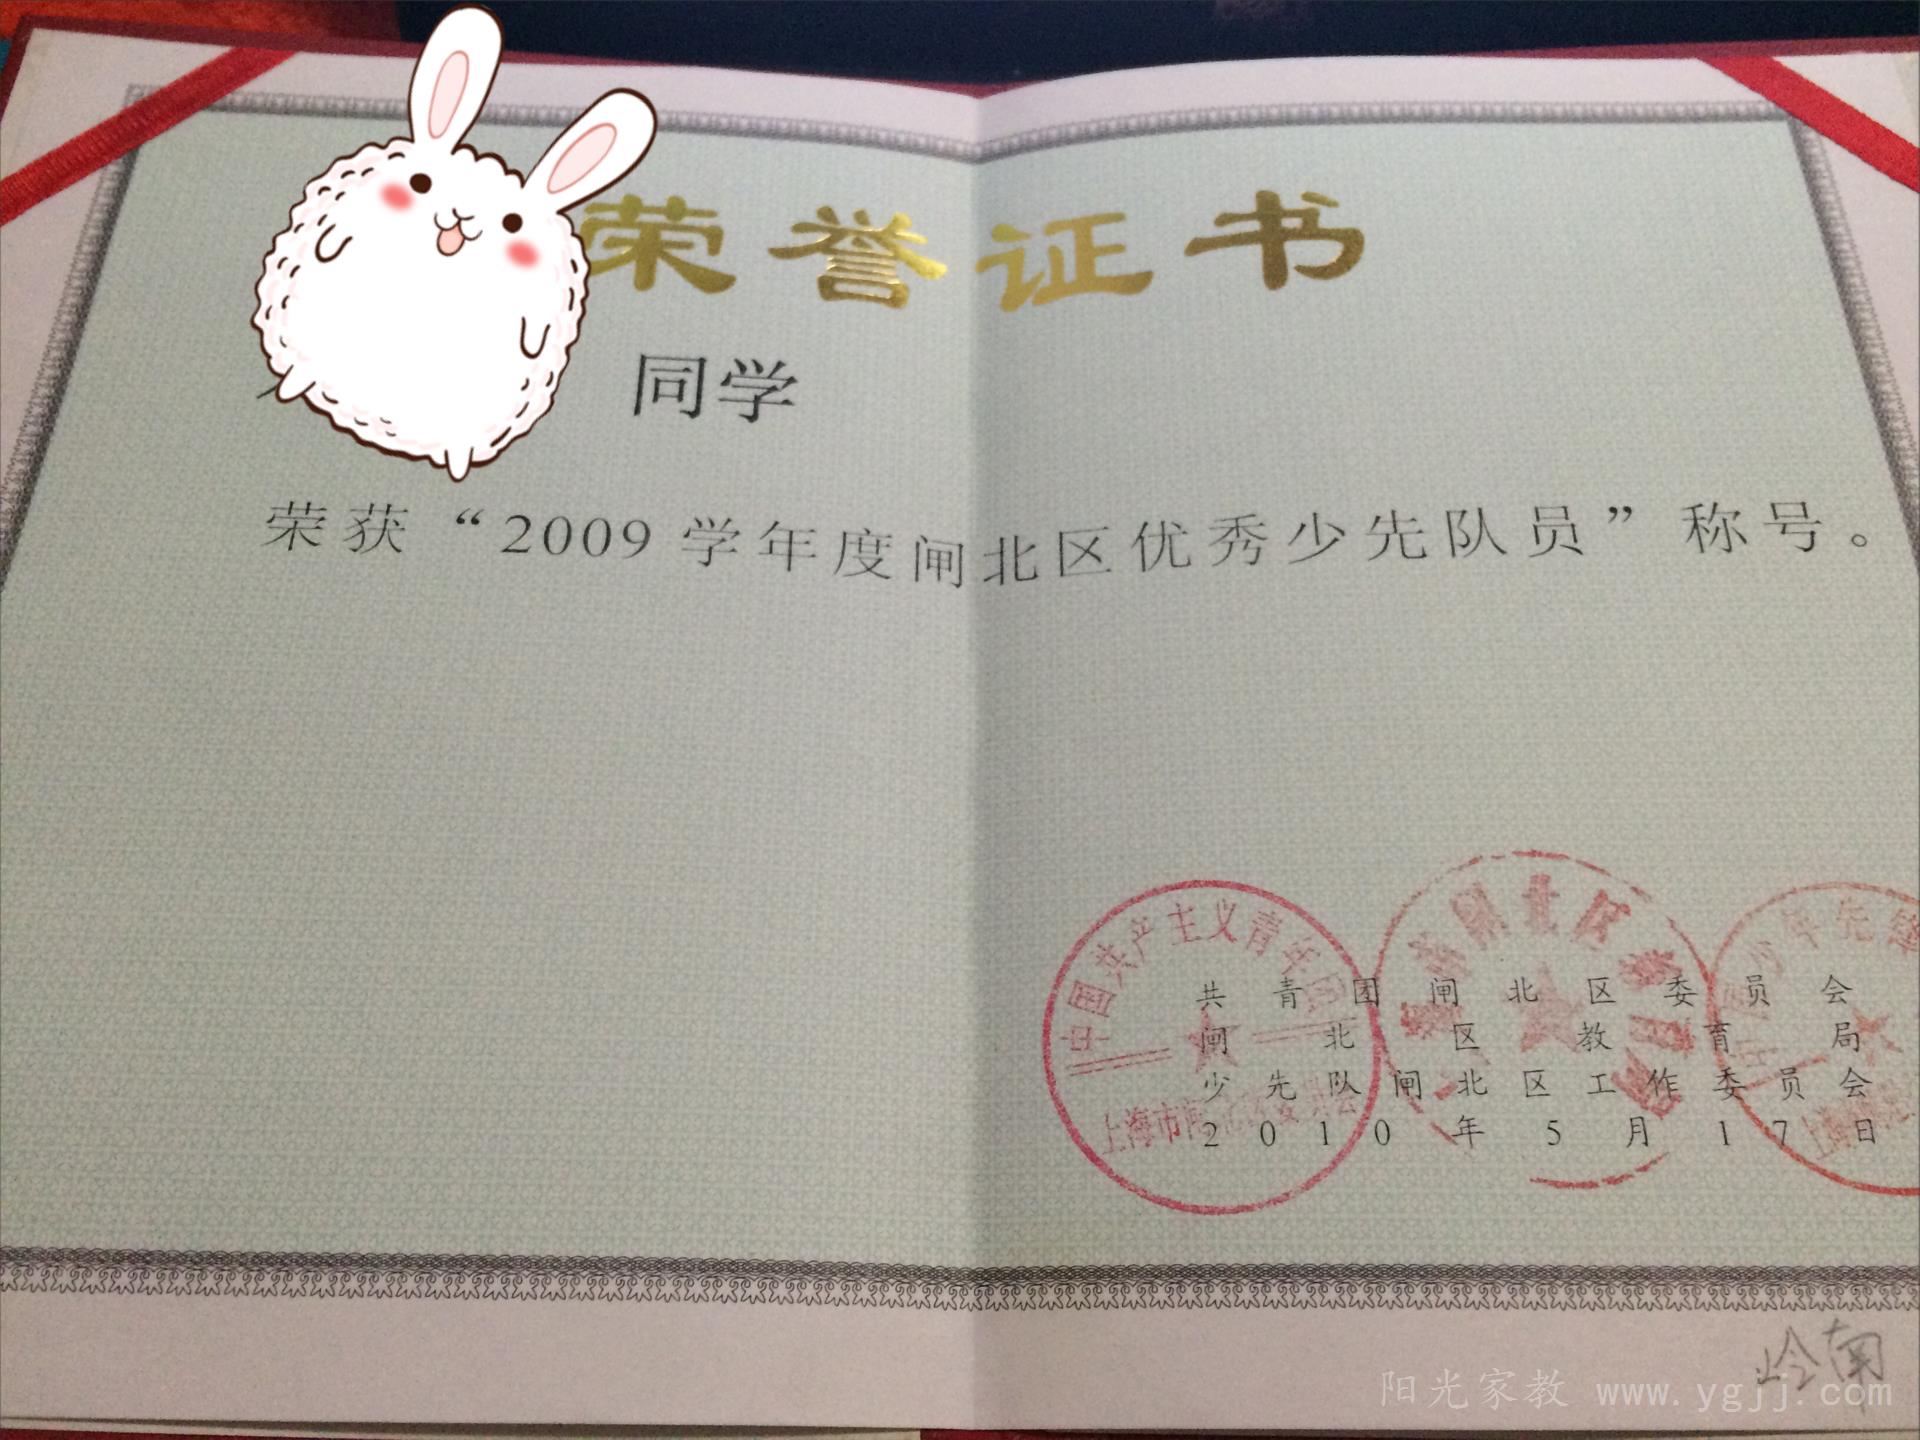 荣誉证书
同学
荣获“2009学年度闸北区优秀少先队员”称号。
中国共产主义青年团
上海市闸北区委员会
闸北区
少年先
共青团闸北区委员会
闸北区教育局
少先队闸北区工作委员会
2010年5月17日
岭南
阳光家教 www.ygjj.com